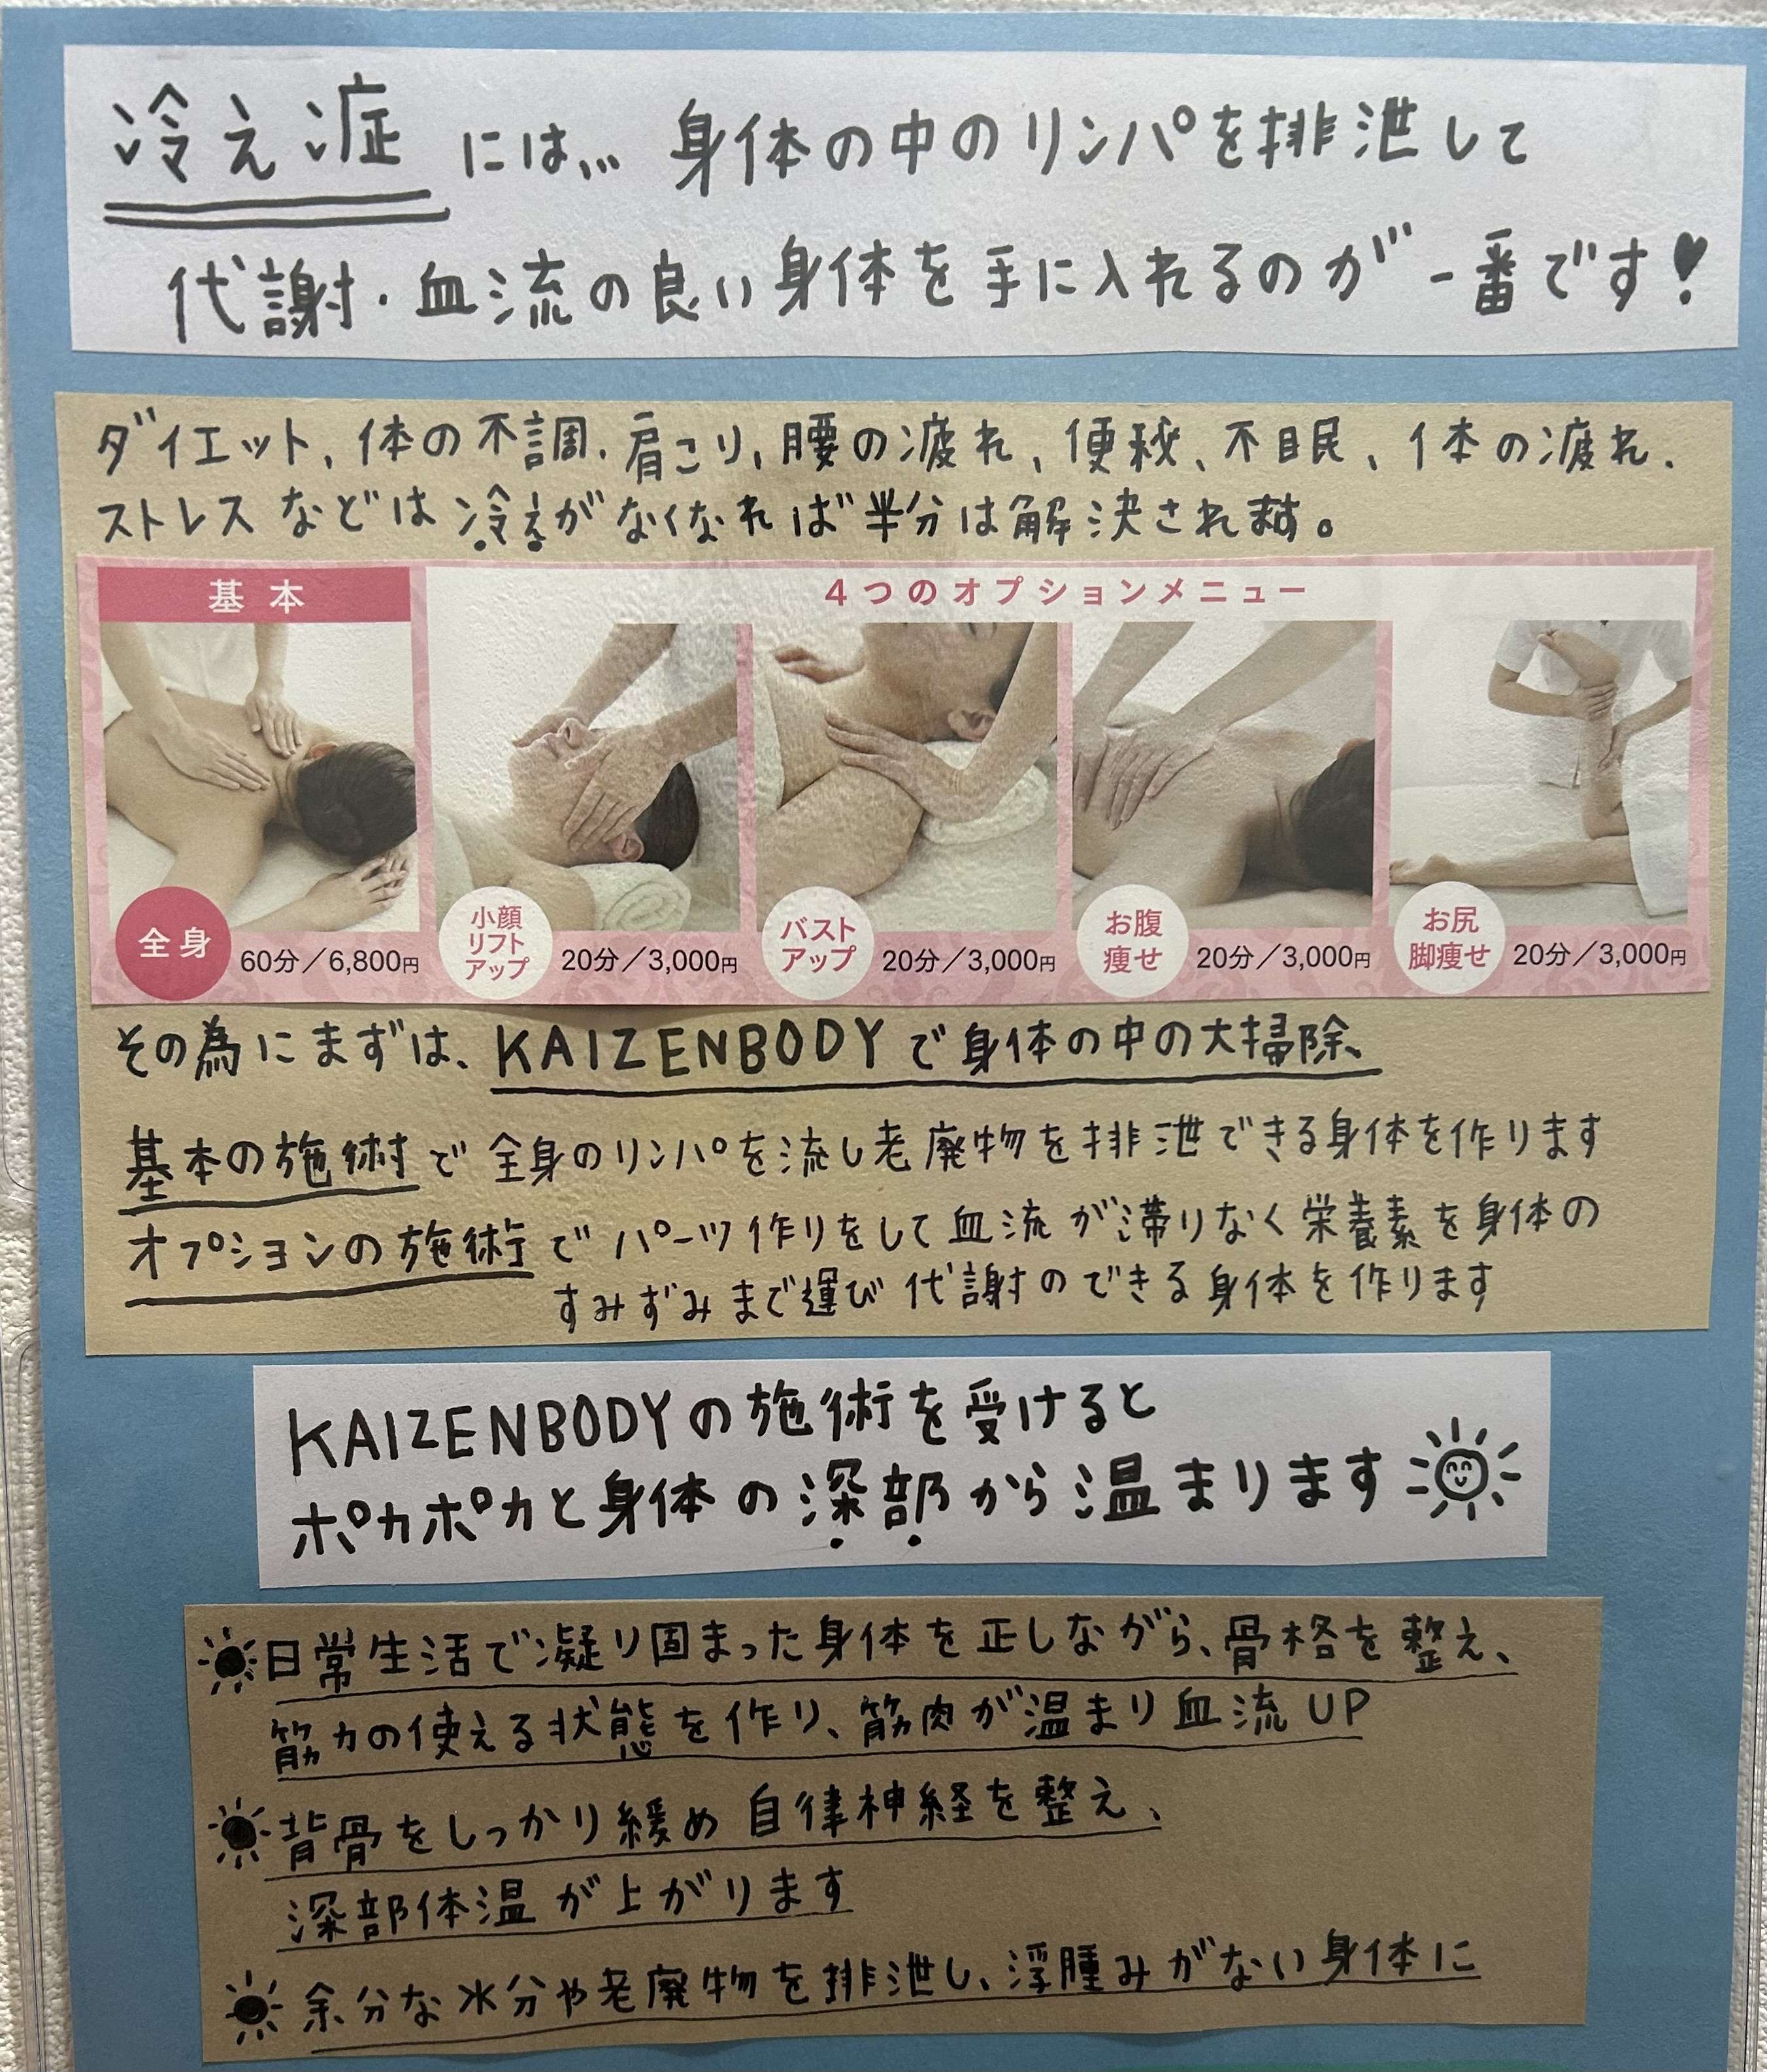 冷え症には… 身体の中のリンパを排泄して
代謝・血流の良い身体を手に入れるのが一番です!
ダイエット、体の不調、肩こり、腰の疲れ、便秘、不眠、体の疲れ、
ストレスなどは冷えがなくなれば半分は解決されます。
基本
4つのオプションメニュー
全身 60分/6,800円
小顔
リフト
アップ
20分/3,000円
バスト
アップ
20分/3,000円
お腹
痩せ
20分/3,000円
お尻
脚痩せ
20分/3,000円
その為にまずは、KAIZENBODYで身体の中の大掃除、
基本の施術で全身のリンパを流し老廃物を排泄できる身体を作ります
オプションの施術でパーツ作りをして血流が滞りなく栄養素を身体の
すみずみまで運び代謝のできる身体を作ります
KAIZENBODYの施術を受けると
ポカポカと身体の深部から温まります
日常生活で凝り固まった身体を正しながら、骨格を整え、
筋力の使える状態を作り、筋肉が温まり血流UP
背骨をしっかり緩め自律神経を整え、
深部体温が上がります
余分な水分や老廃物を排泄し、浮腫みがない身体に